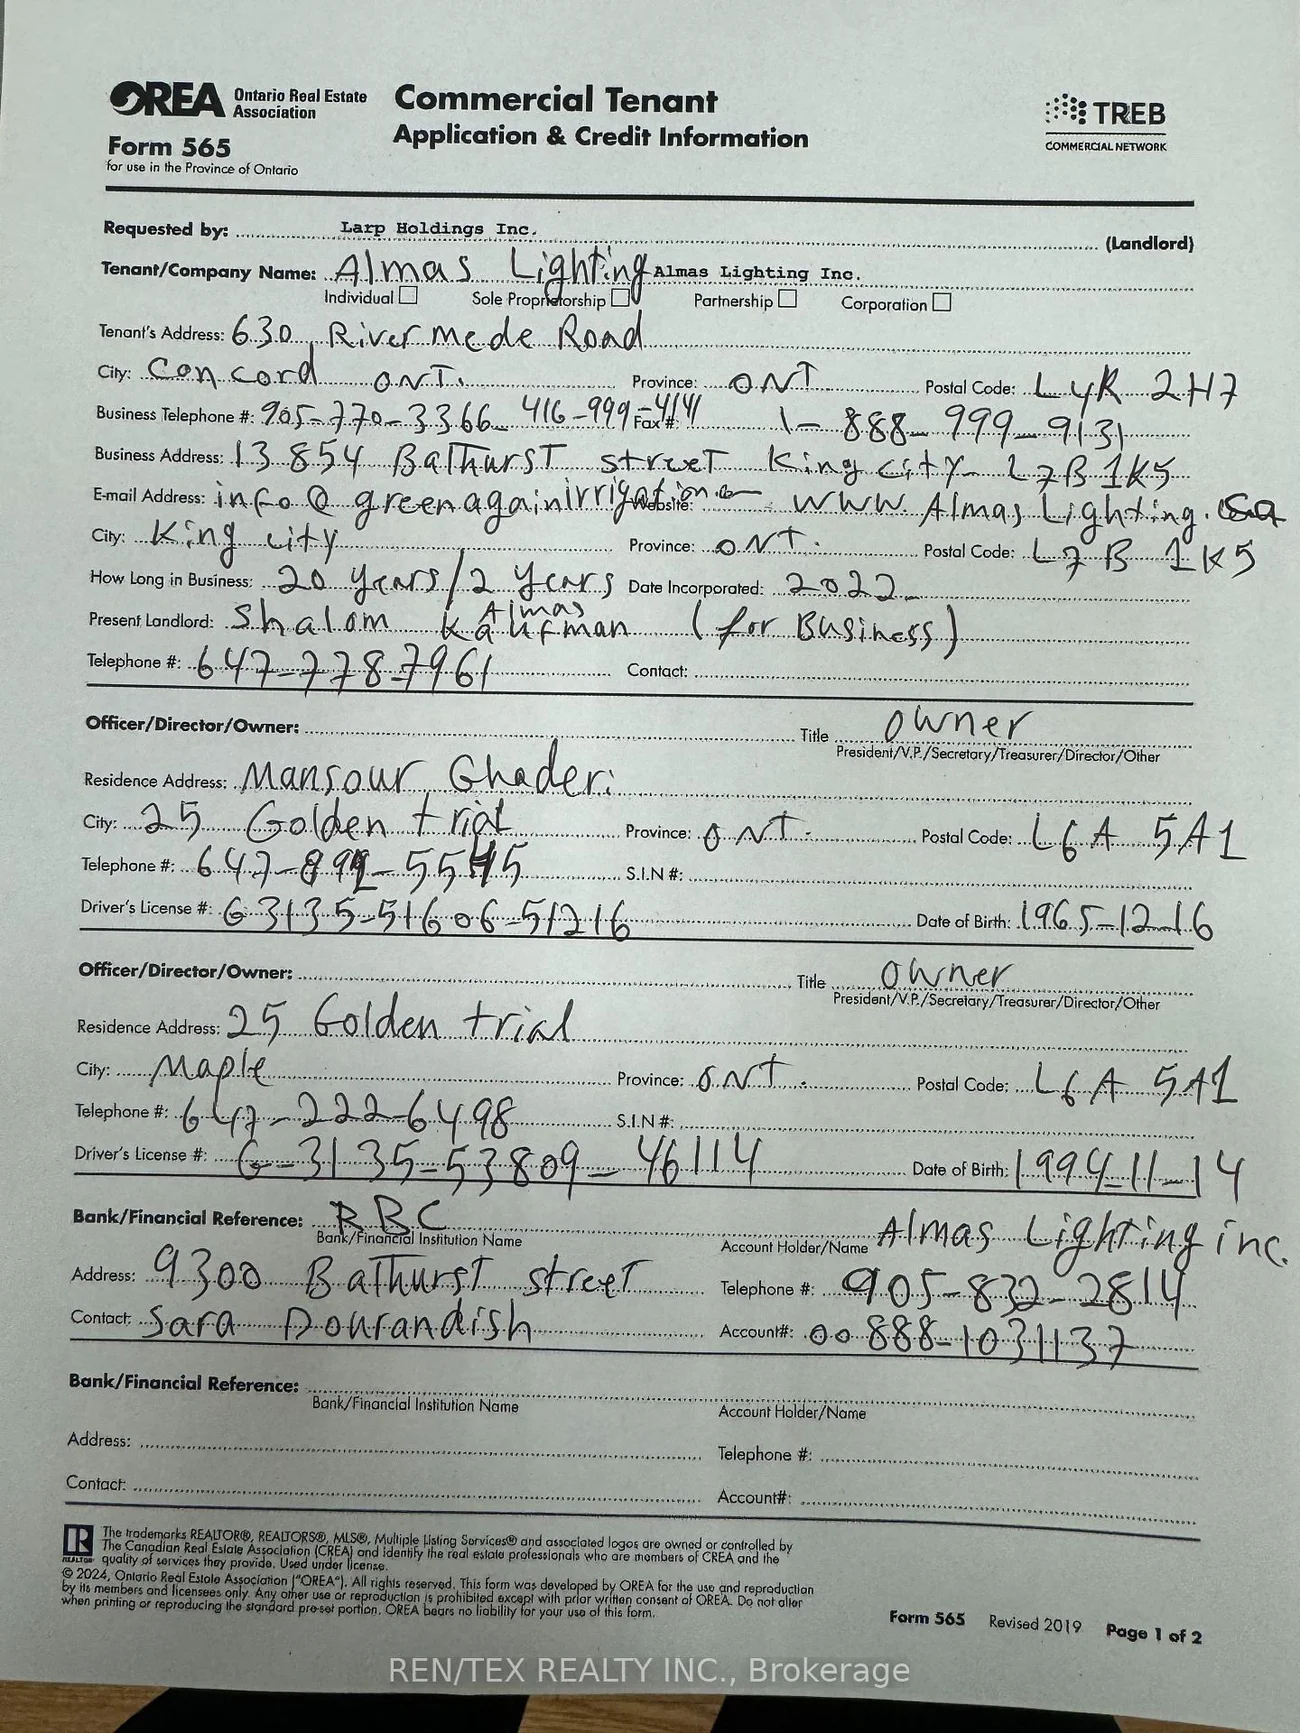 OREA Ontario Real Estate Association
Commercial Tenant
Application & Credit Information
TREB
COMMERCIAL NETWORK
Form 565
for use in the Province of Ontario
Requested by: Larp Holdings Inc. (Landlord)
Tenant/Company Name: Almas Lighting Almas Lighting Inc.
Individual Sole Proprietorship Partnership Corporation
Tenant's Address: 630 Rivermede Road
City: Concord ONT. Province: ONT Postal Code: L4K 2H7
Business Telephone #: 905-770-3366 416-999-4141 Fax #: 1-888-999-9131
Business Address: 13854 Bathurst street King city L7B 1K5
E-mail Address: info@greenagainirrigation. Website: www.Almas Lighting.
City: King city Province: ONT. Postal Code: L7B 1K5
How Long in Business: 20 years/2 years Date Incorporated: 2022
Present Landlord: Shalom Almas Kaufman (for Business)
Telephone #: 647-778-7961 Contact:
Officer/Director/Owner: Title owner
President/V.P./Secretary/Treasurer/Director/Other
Residence Address: Mansour Ghaderi
City: 25 Golden trial Province: ONT. Postal Code: L6A 5A1
Telephone #: 647- S.I.N #:
Driver's License #: G3135-51606-51216 Date of Birth: 1965-12-16
Officer/Director/Owner: Title owner
President/V.P./Secretary/Treasurer/Director/Other
Residence Address: 25 Golden trial
City: Maple Province: ONT. Postal Code: L6A 5A1
Telephone #: 647-222-6498 S.I.N #:
Driver's License #: G-3135-53809-46114 Date of Birth: 1994-11-14
Bank/Financial Reference: RBC Almas Lighting inc.
Bank/Financial Institution Name Account Holder/Name
Address: 9300 Bathurst street Telephone #: 905-832-2814
Contact: Sara Dourandish Account#: 00888-1031137
Bank/Financial Reference:
Bank/Financial Institution Name Account Holder/Name
Address: Telephone #:
Contact: Account#:
The trademarks REALTOR®, REALTORS®, MLS®, Multiple Listing Services® and associated logos are owned or controlled by
The Canadian Real Estate Association (CREA) and identify the real estate professionals who are members of CREA and the
quality of services they provide. Used under license.
© 2024, Ontario Real Estate Association ("OREA"). All rights reserved. This form was developed by OREA for the use and reproduction
by its members and licensees only. Any other use or reproduction is prohibited except with prior written consent of OREA. Do not alter
when printing or reproducing the standard pre-set portion. OREA bears no liability for your use of this form.
Form 565 Revised 2019 Page 1 of 2
REN/TEX REALTY INC., Brokerage